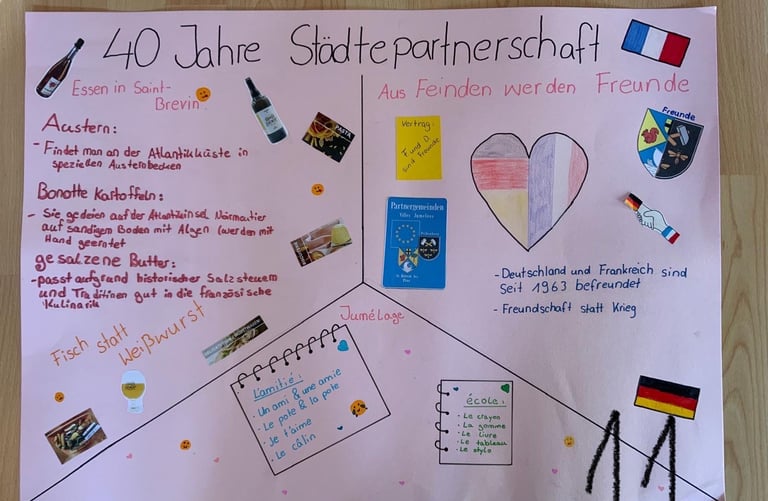 40 Jahre Städtepartnerschaft
Essen in Saint-
Brevin
Austern:
- Findet man an der Atlantikküste in
speziellen Austenbecken
Bonotte Kartoffeln:
- Sie gedeien auf der Atlantikinsel Noirmoutier
auf sandigem Boden mit Algen (werden mit
Hand geerntet
gesalzene Butter:
- passt aufgrund historischer Salzsteuern
und Traditinen gut in die französische
Kulinarik
Fisch statt
Weißwurst
PASTA
Aus Feinden werden Freunde
Vertrag:
F und D
sind Freunde
Partnergemeinden
Villes Jumelées
Freunde
- Deutschland und Frankreich sind
seit 1963 befreundet
- Freundschaft statt Krieg
Jumélage
L'amitié:
- Un ami & une amie
- Le pote & la pote
- Je t'aime
- Le câlin
école:
- Le crayon
- La gomme
- Le livre
- Le tableau
- Le stylo
11